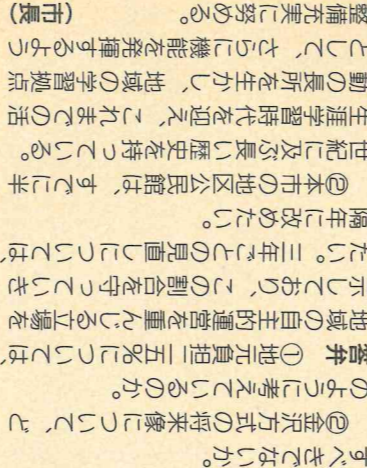 すべきでないか。
②金沢方式の将来像について、ど
のように考えているのか。
答弁 ①地元負担二五%については、
地域の自主的運営を重んじる立場を
示しており、この割合を守っていき
たい。三年ごとの見直しについては、
隔年に改めたい。
②本市の地区公民館は、すでに半
世紀に及ぶ長い歴史を持っている。
生涯学習時代を迎え、これまでの活
動の長所を生かし、地域の学習拠点
として、さらに機能を発揮するよう
整備充実に努める。 (市長)